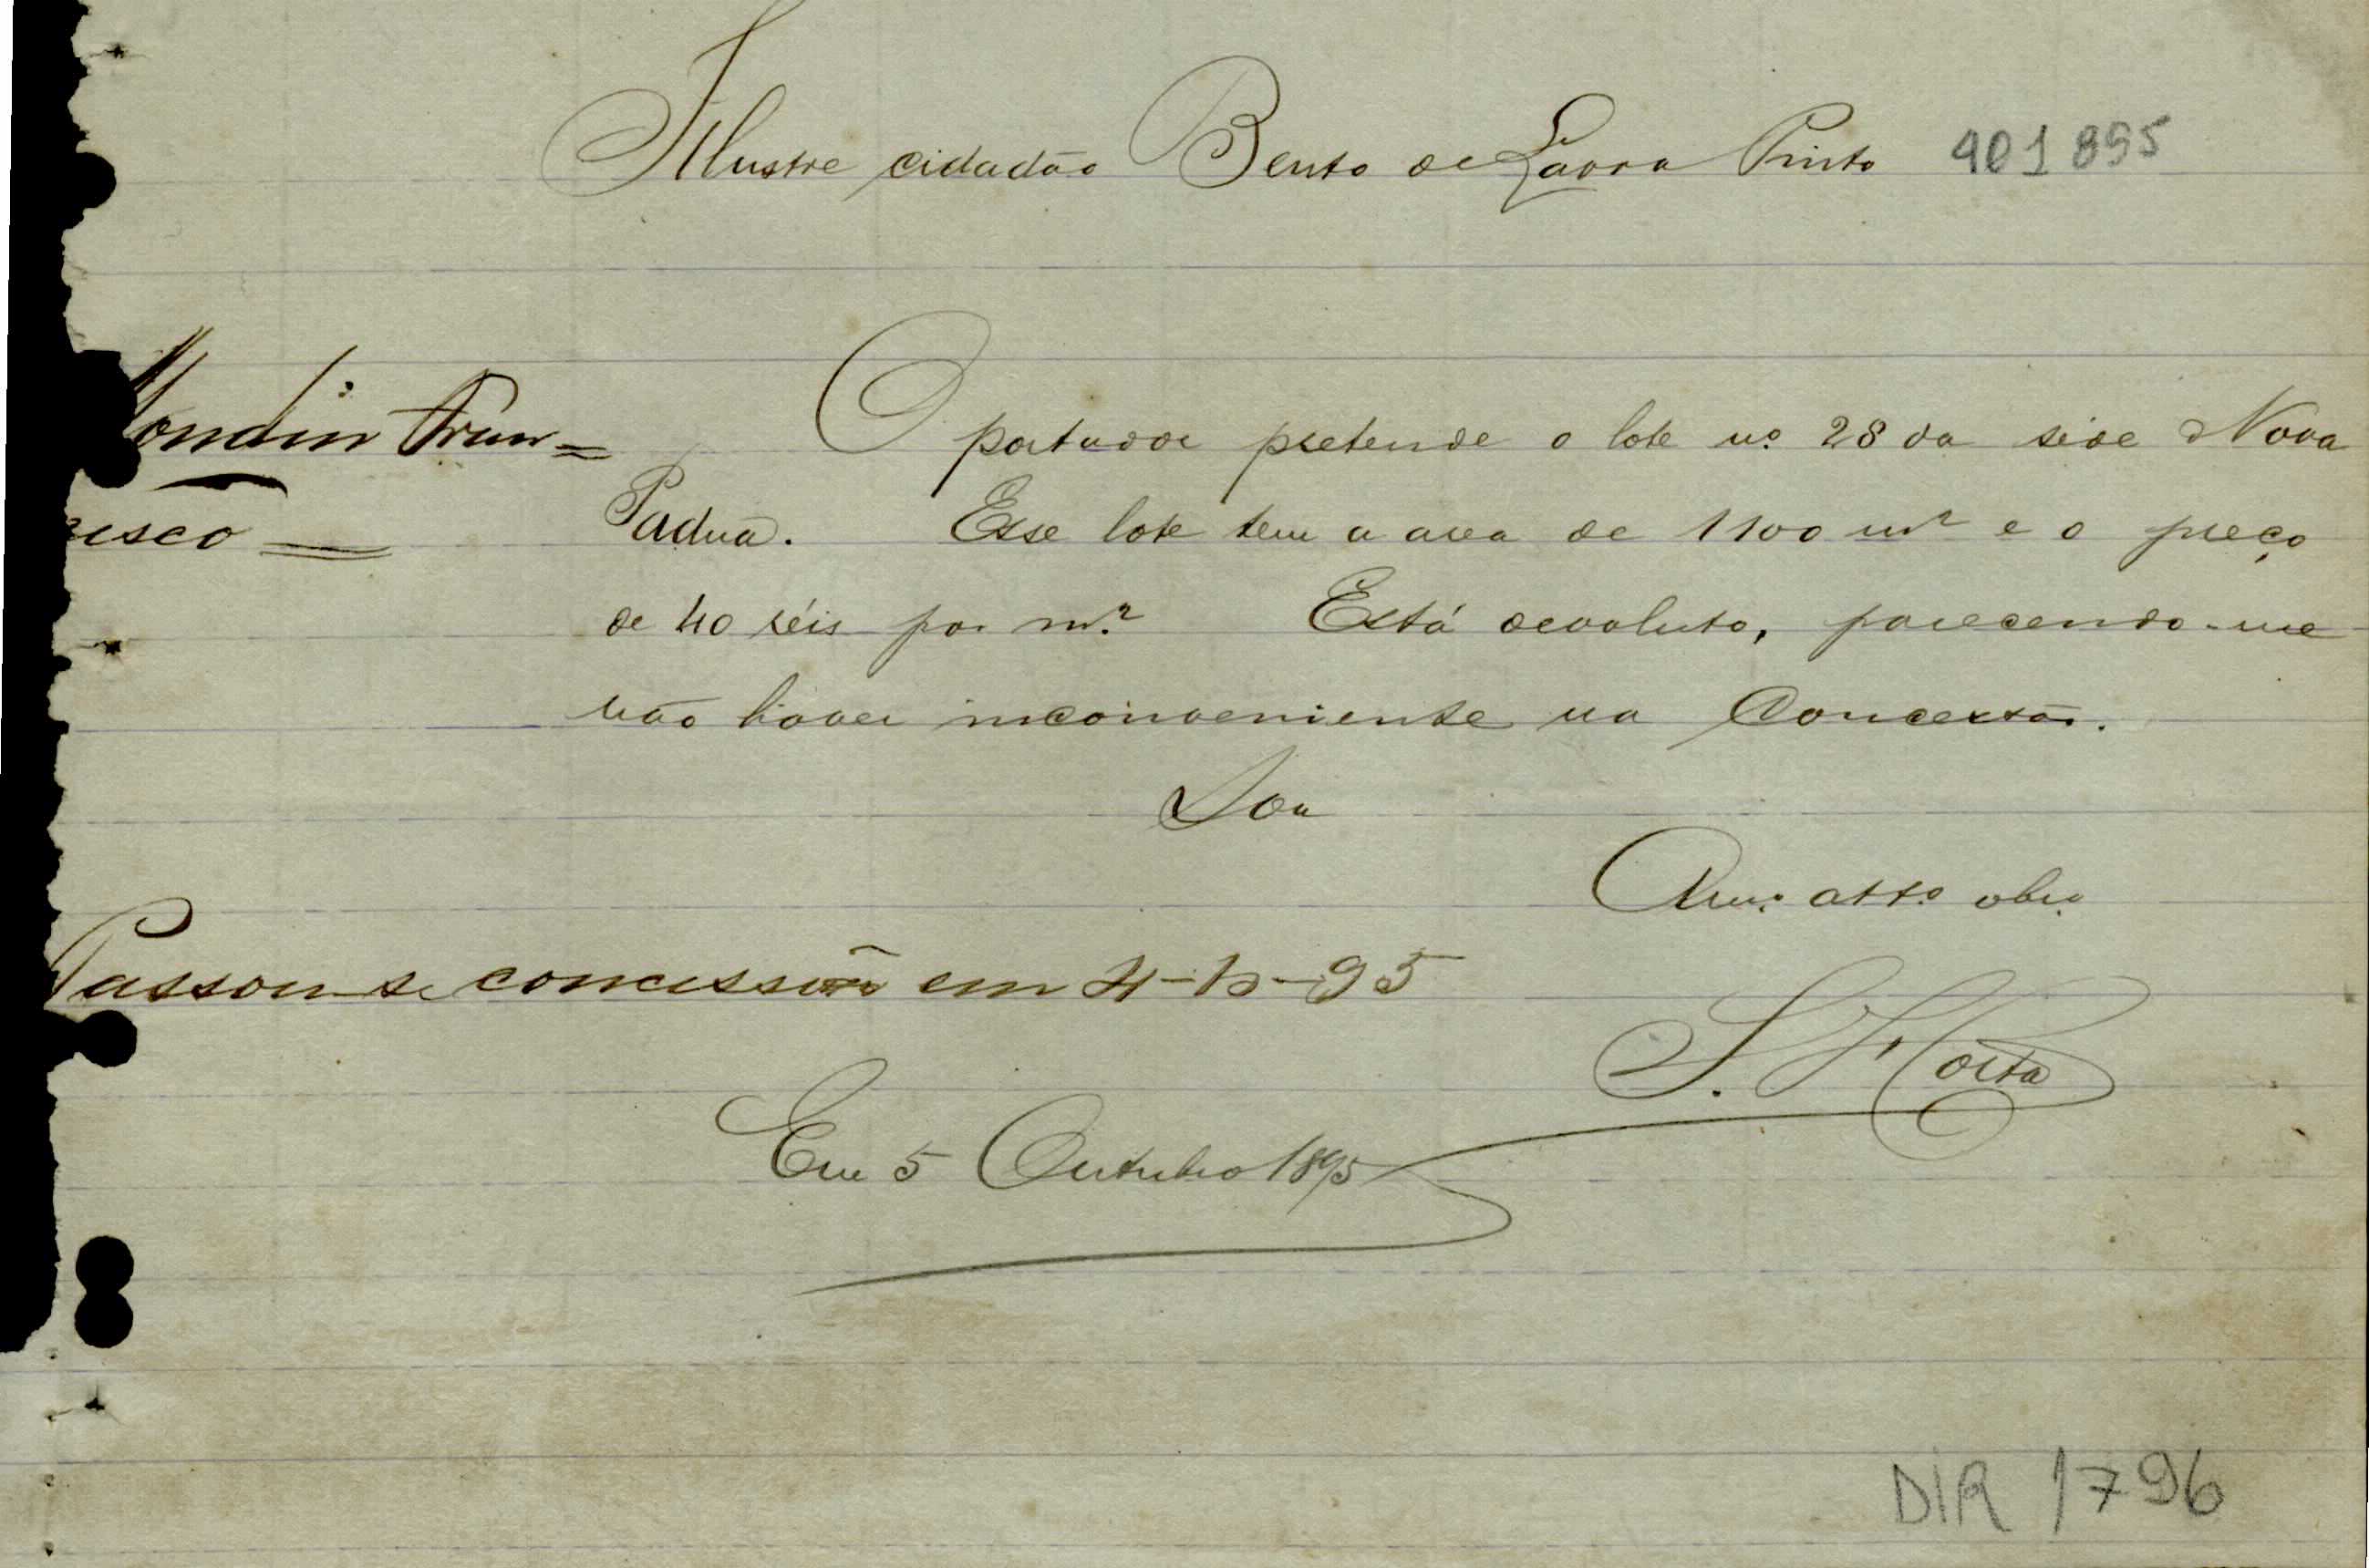 Illustre cidadão Bento de Lavra Pinto 401895
O portador pretende o lote nº 28 da séde Nova
Padua. Esse lote tem a area de 1100 m² e o preço
de 40 réis por m.² Está devoluto, parecendo-me
não haver inconveniente na Concessão.
Sou
Amº attº obrº
S. Costa
Em 5 Outubro 1895
Fran=
cisco
Passou-se concessão em
DIR 1796